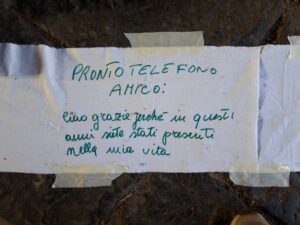 PRONTO TELEFONO
AMICO:
ciao grazie perché in questi
anni siete stati presenti
nella mia vita